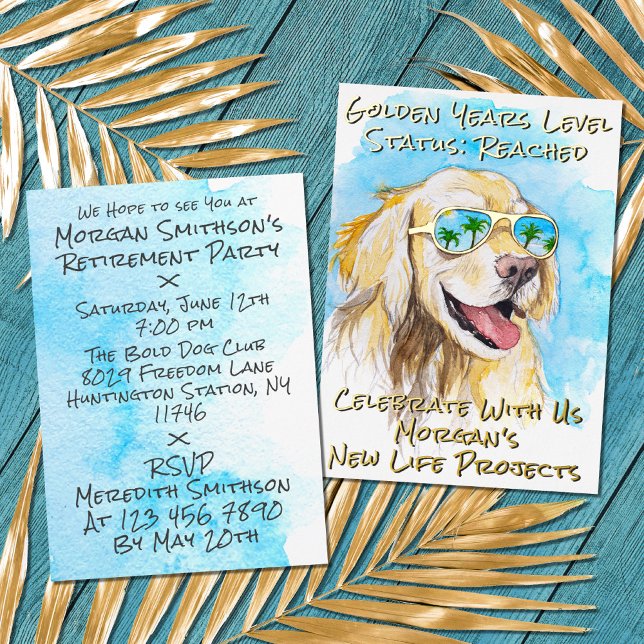 We Hope to see You at
Morgan Smithson's
Retirement Party
X
Saturday, June 12th
7:00 pm
The Bold Dog Club
8029 Freedom Lane
Huntington Station, NY
11746
X
RSVP
Meredith Smithson
At 123 456 7890
By May 20th
Golden Years Level
Status: Reached
Celebrate With Us
Morgan's
New Life Projects